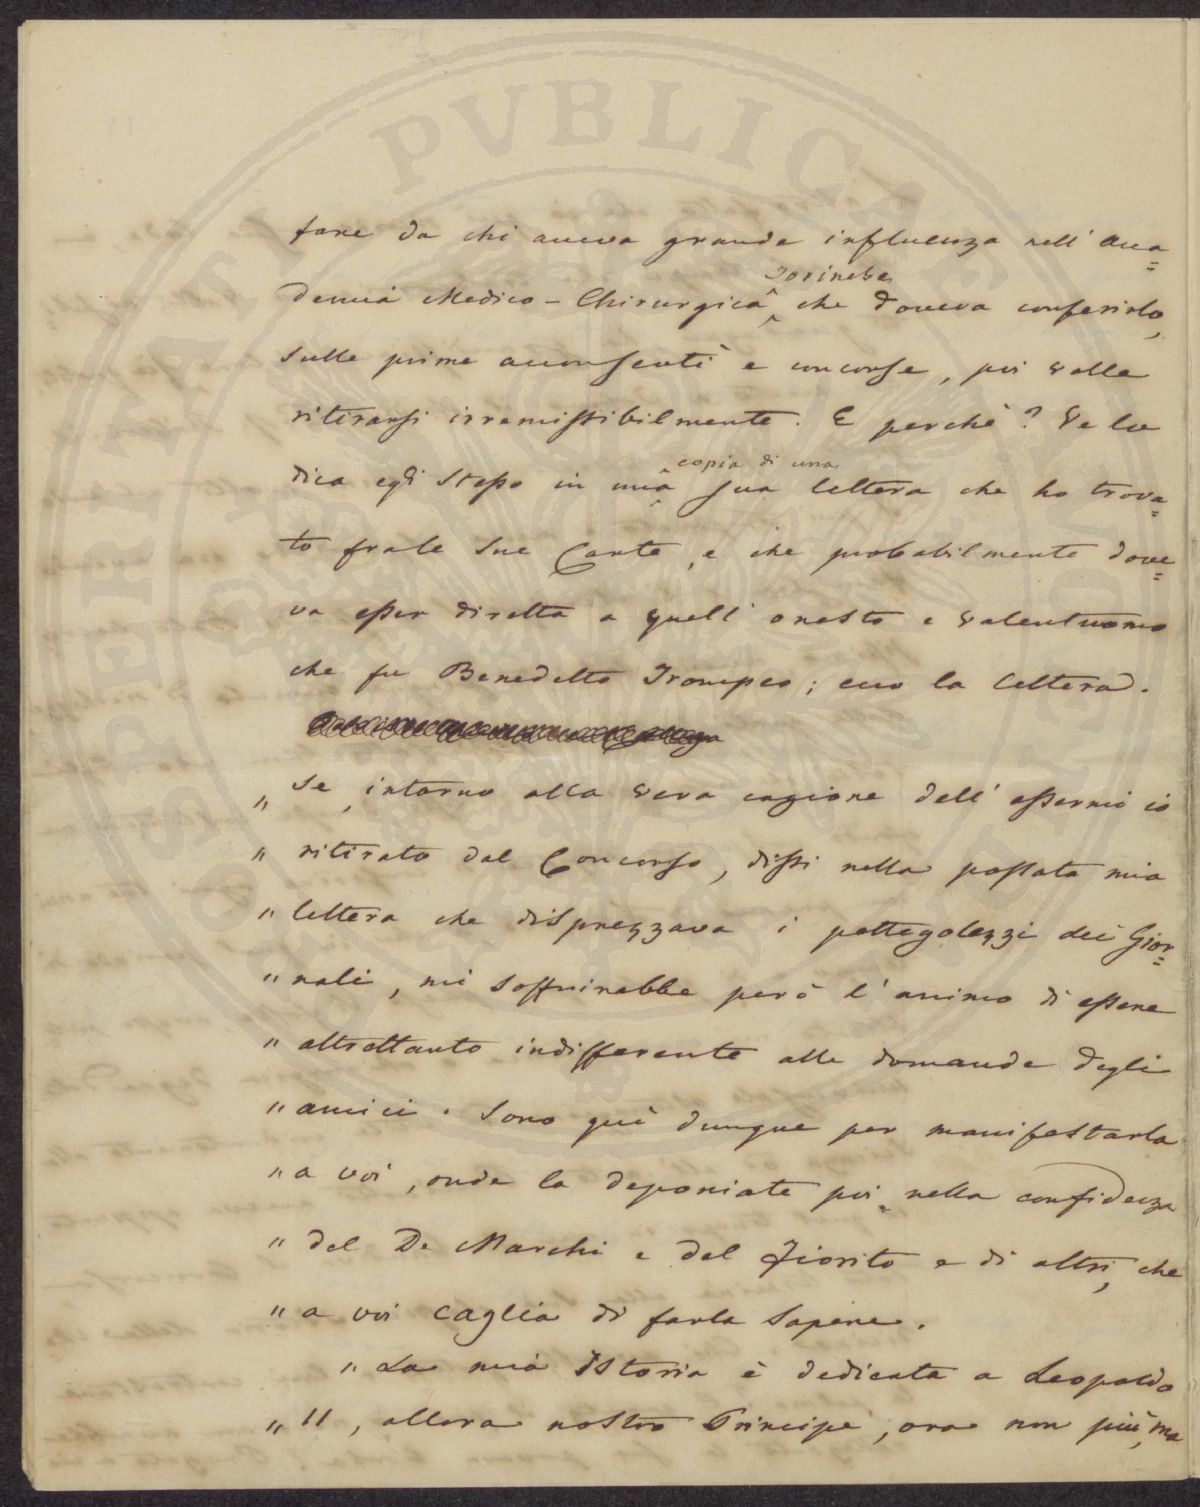 PVBLICAE
fare da chi aveva grande influenza nell' Acca=
demia Medico-Chirurgica ^ Torinese che doveva conferirlo,
sulle prime acconsentì e concorse, poi volle
ritirarsi irremissibilmente. E perchè? Ve lo
dica egli stesso in una ^ copia di una sua lettera che ho trova=
to fralle sue Carte, e che probabilmente dove=
va esser diretta a quell' onesto e valentuomo
che fu Benedetto Trompeo; ecco la lettera.
„ Se, intorno alla vera cagione dell' essermi io
„ ritirato dal Concorso, dissi nella passata mia
„ lettera che disprezzava i pettegolezzi dei Gior=
„ nali, mi soffrirebbe però l' animo di essere
„ altrettanto indifferente alle domande degli
„ amici. Sono quì dunque per manifestarla
„ a voi, onde la deponiate poi nella confidenza
„ del De Marchi e del Fiorito e di altri, che
„ a voi caglia di farla sapere.
„ La mia Istoria è dedicata a Leopoldo
„ II, allora nostro Principe, ora non più, ma